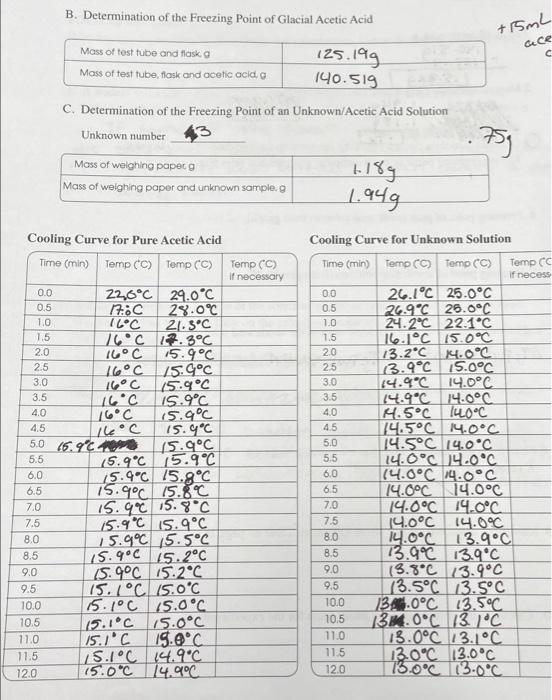 B. Determination of the Freezing Point of Glacial Acetic Acid
+15mL
ace
Mass of test tube and flask, g 125.19g
Mass of test tube, flask and acetic acid, g 140.519
C. Determination of the Freezing Point of an Unknown/Acetic Acid Solution
Unknown number 3
.75g
Mass of weighing paper, g 1.18g
Mass of weighing paper and unknown sample, g 1.94g
Cooling Curve for Pure Acetic Acid
Time (min) Temp (°C) Temp (°C) Temp (°C) if necessary
0.0 22.6°C 29.0°C
0.5 17.8C 28.0°C
1.0 16°C 21.3°C
1.5 16°C 17.3°C
2.0 16°C 15.9°C
2.5 16°C 15.9°C
3.0 16°C 15.9°C
3.5 16°C 15.9°C
4.0 16°C 15.9°C
4.5 16°C 15.9°C
5.0 15.9°C 15.9°C
5.5 15.9°C 15.9°C
6.0 15.9°C 15.8°C
6.5 15.9°C 15.8°C
7.0 15.9°C 15.8°C
7.5 15.9°C 15.9°C
8.0 15.9°C 15.5°C
8.5 15.9°C 15.2°C
9.0 15.9°C 15.2°C
9.5 15.1°C 15.0°C
10.0 15.1°C 15.0°C
10.5 15.1°C 15.0°C
11.0 15.1°C 15.0°C
11.5 15.1°C 14.9°C
12.0 15.0°C 14.9°C
Cooling Curve for Unknown Solution
Time (min) Temp (°C) Temp (°C) Temp (°C if necess
0.0 26.1°C 25.0°C
0.5 26.9°C 25.0°C
1.0 24.2°C 22.1°C
1.5 16.1°C 15.0°C
2.0 13.2°C 14.0°C
2.5 13.9°C 15.0°C
3.0 14.9°C 14.0°C
3.5 14.9°C 14.0°C
4.0 14.5°C 14.0°C
4.5 14.5°C 14.0°C
5.0 14.5°C 14.0°C
5.5 14.0°C 14.0°C
6.0 14.0°C 14.0°C
6.5 14.0°C 14.0°C
7.0 14.0°C 14.0°C
7.5 14.0°C 14.0°C
8.0 14.0°C 13.9°C
8.5 13.9°C 13.9°C
9.0 13.8°C 13.9°C
9.5 13.5°C 13.5°C
10.0 13.0°C 13.5°C
10.5 13.0°C 13.1°C
11.0 13.0°C 13.1°C
11.5 13.0°C 13.0°C
12.0 13.0°C 13.0°C